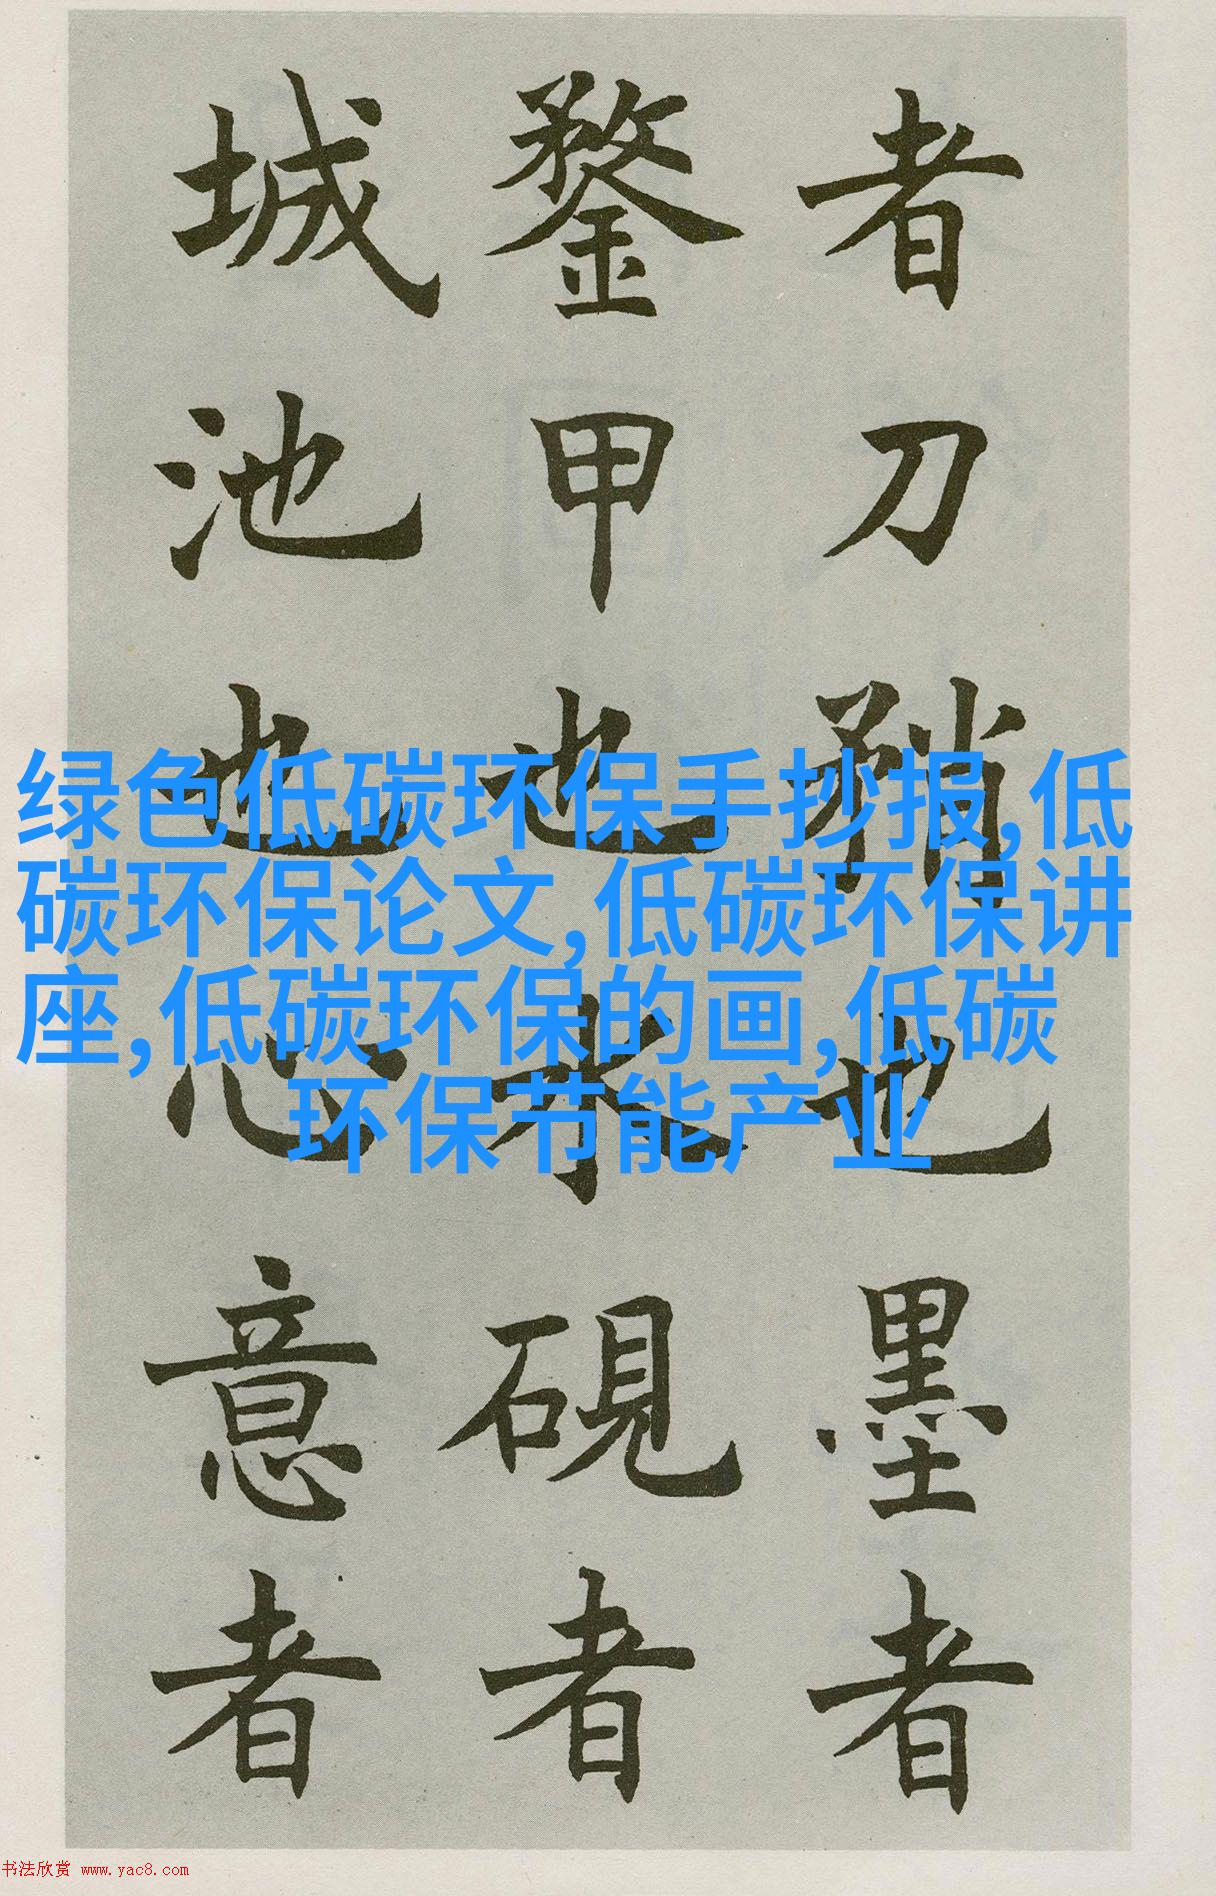 者刀矟也墨者
鍪甲也水硯者
城池也心意者
绿色低碳环保手抄报,低
碳环保论文,低碳环保讲
座,低碳环保的画,低碳
环保节能产业
书法欣赏 www.yac8.com